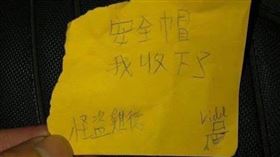 安全帽
我收下了
怪盜雞德